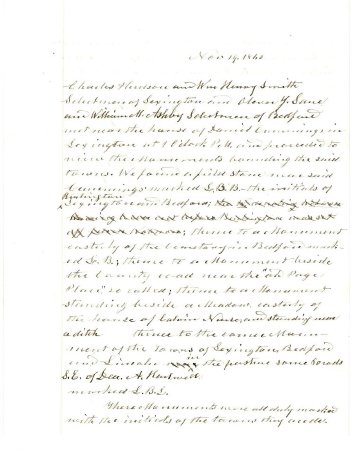 Nov 19. 1860
Charles Hudson and Wm Henry Smith
Selectmen of Lexington and Oliver J. Lane
and William A. Ashby Selectmen of Bedford
met near the house of Daniel Cummings in
Lexington at 1 O'clock P.M. and proceeded to
view the Monuments bounding the said
towns. We found a field stone near said
Cummings marked L.B.B. the initials of
Burlington
Lexington and Bedford,
thence to a Monument
easterly of the Cemetery in Bedford mark-
ed L.B; thence to a Monument beside
the County road near the "old Page
Place" so called; thence to a Monument
standing beside a Meadow easterly of
the house of Calvin and standing near
a ditch thence to the corner Monu-
ment of the towns of Lexington Bedford
and Lincoln in the pasture some 60 rods
S.E. of Dea. A. Hartwell
marked L.B.L.
These Monuments were all duly marked
with the initials of the towns they